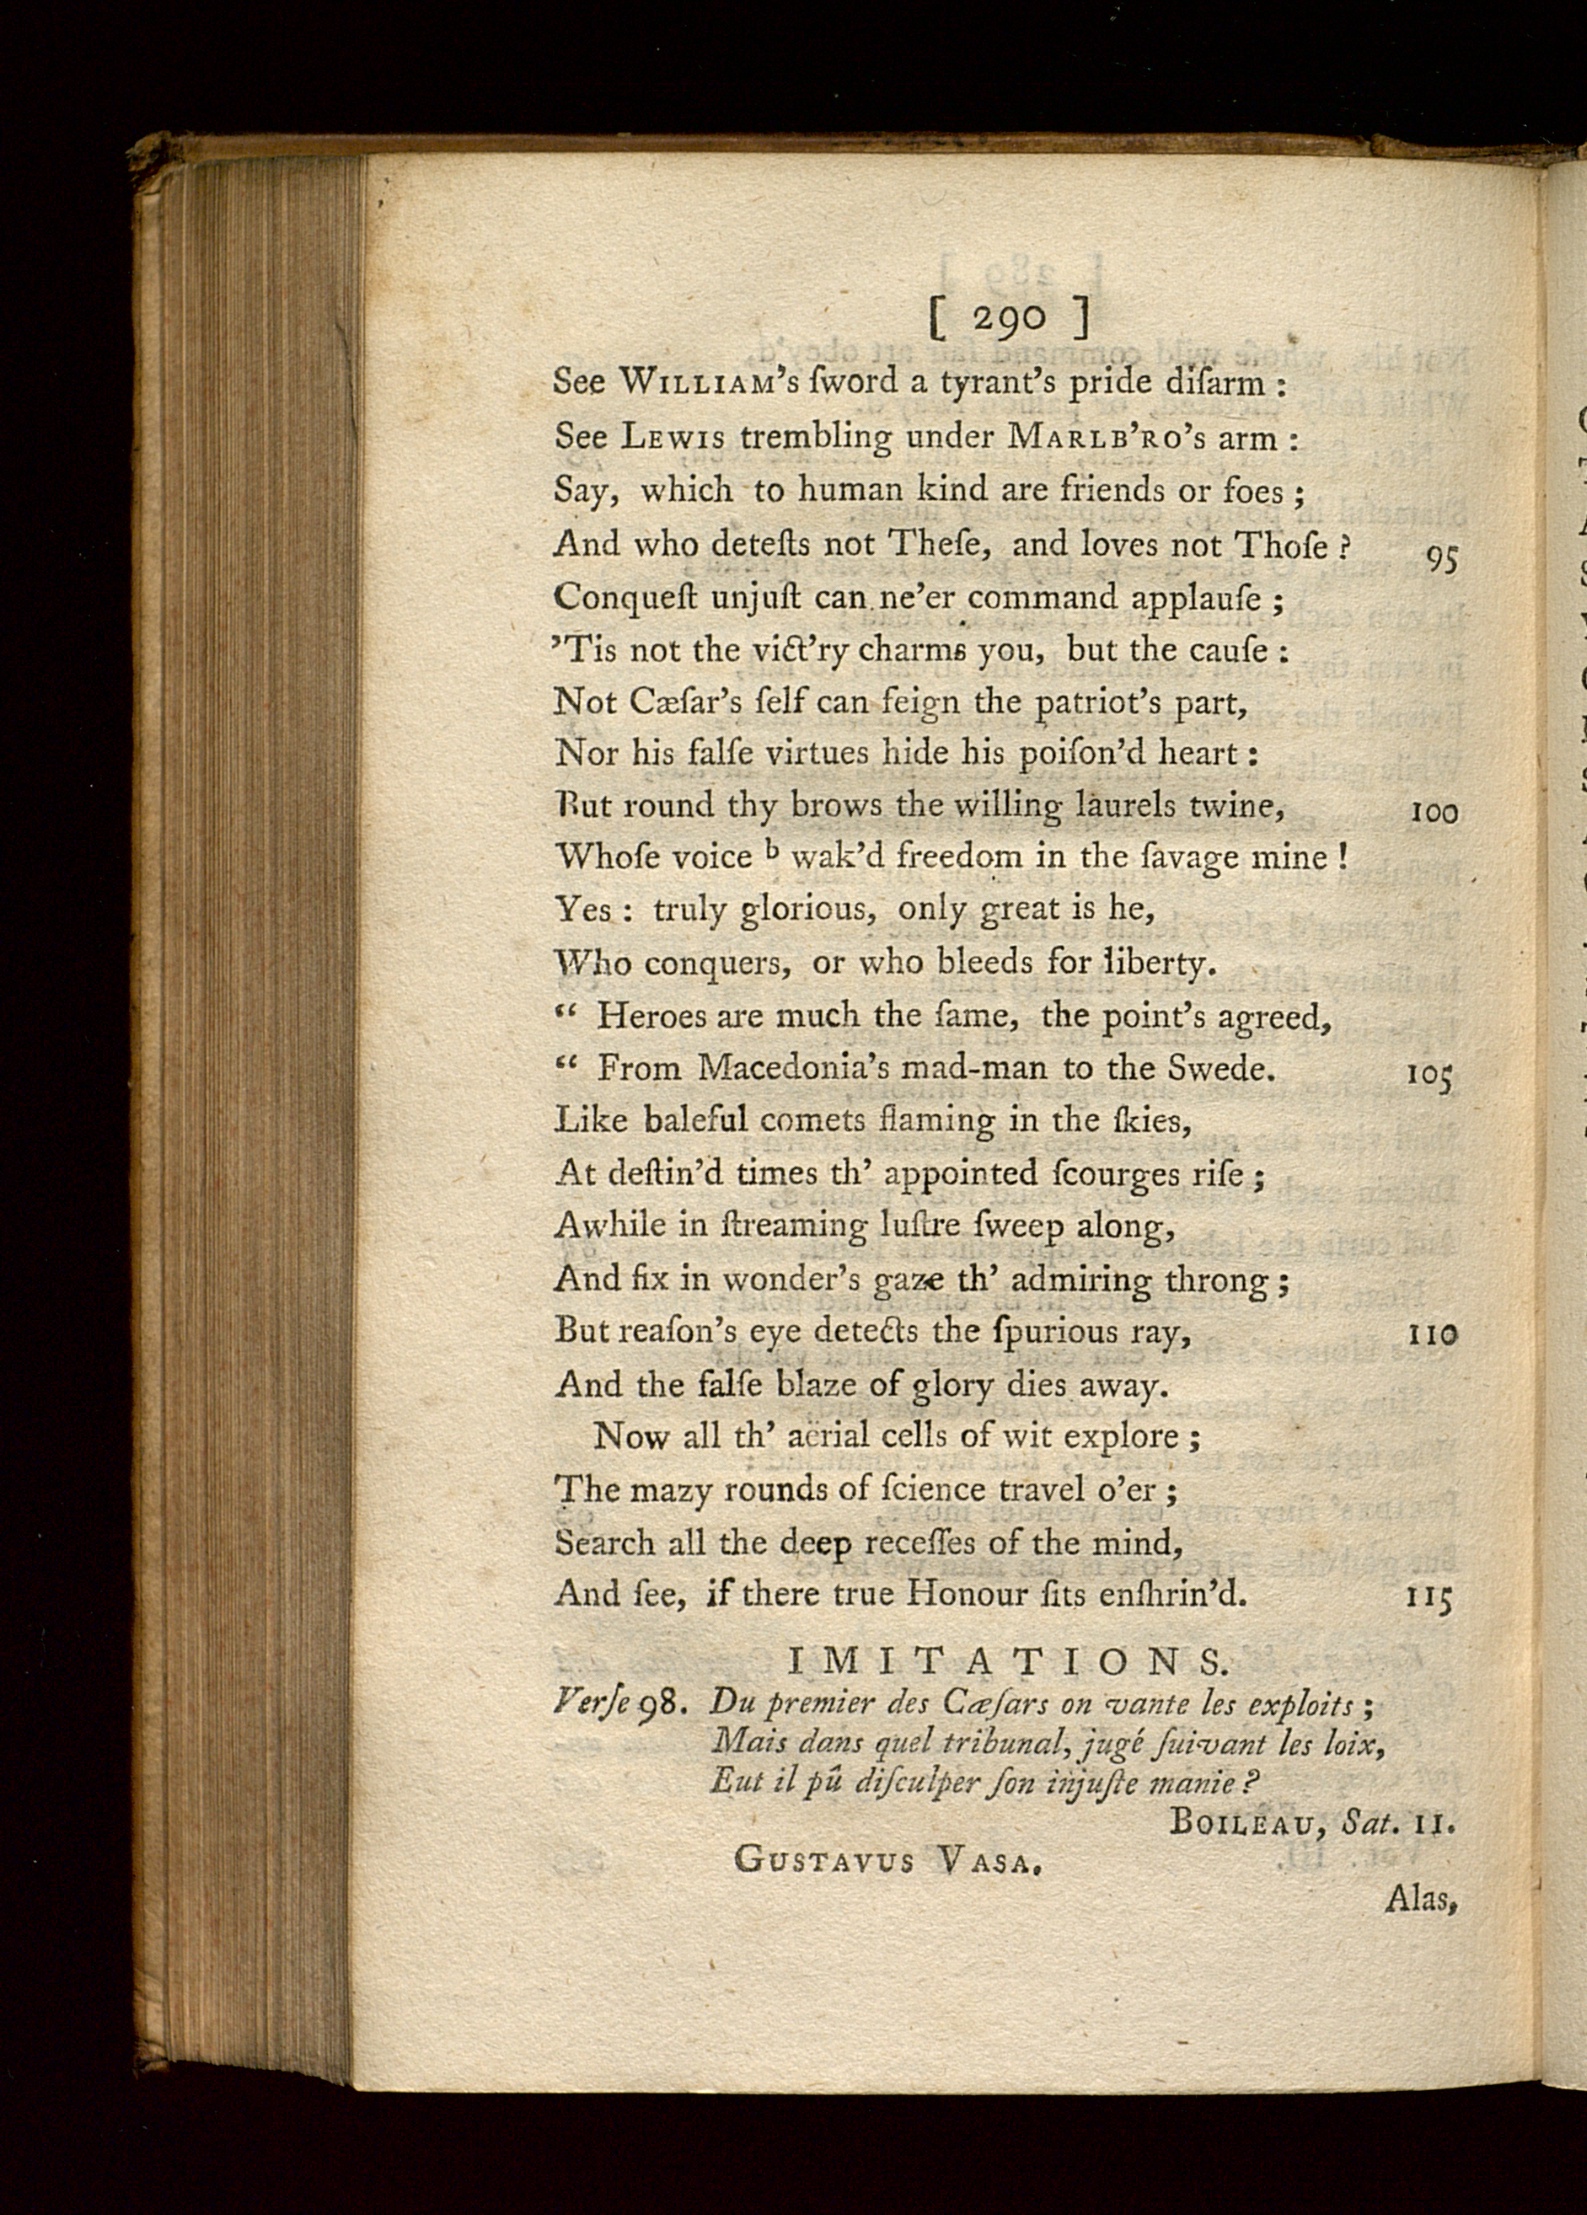 [ 290 ]
See WILLIAM'S ſword a tyrant's pride diſarm :
See LEWIS trembling under MARLB'RO'S arm :
Say, which to human kind are friends or foes ;
And who deteſts not Theſe, and loves not Thoſe ? 95
Conqueſt unjuſt can ne'er command applauſe ;
'Tis not the vict'ry charms you, but the cauſe :
Not Cæſar's ſelf can feign the patriot's part,
Nor his falſe virtues hide his poiſon'd heart :
But round thy brows the willing laurels twine, 100
Whoſe voice ᵇ wak'd freedom in the ſavage mine !
Yes : truly glorious, only great is he,
Who conquers, or who bleeds for liberty.
“ Heroes are much the ſame, the point's agreed,
“ From Macedonia's mad-man to the Swede. 105
Like baleful comets flaming in the ſkies,
At deſtin'd times th' appointed ſcourges riſe ;
Awhile in ſtreaming luſtre ſweep along,
And fix in wonder's gaze th' admiring throng ;
But reaſon's eye detects the ſpurious ray, 110
And the falſe blaze of glory dies away.
Now all th' aërial cells of wit explore ;
The mazy rounds of ſcience travel o'er ;
Search all the deep receſſes of the mind,
And ſee, if there true Honour ſits enſhrin'd. 115
IMITATIONS.
Verſe 98. Du premier des Cæſars on vante les exploits ;
Mais dans quel tribunal, jugé ſuivant les loix,
Eut il pû diſculper ſon injuſte manie ?
BOILEAU, Sat. 11.
GUSTAVUS VASA.
Alas,